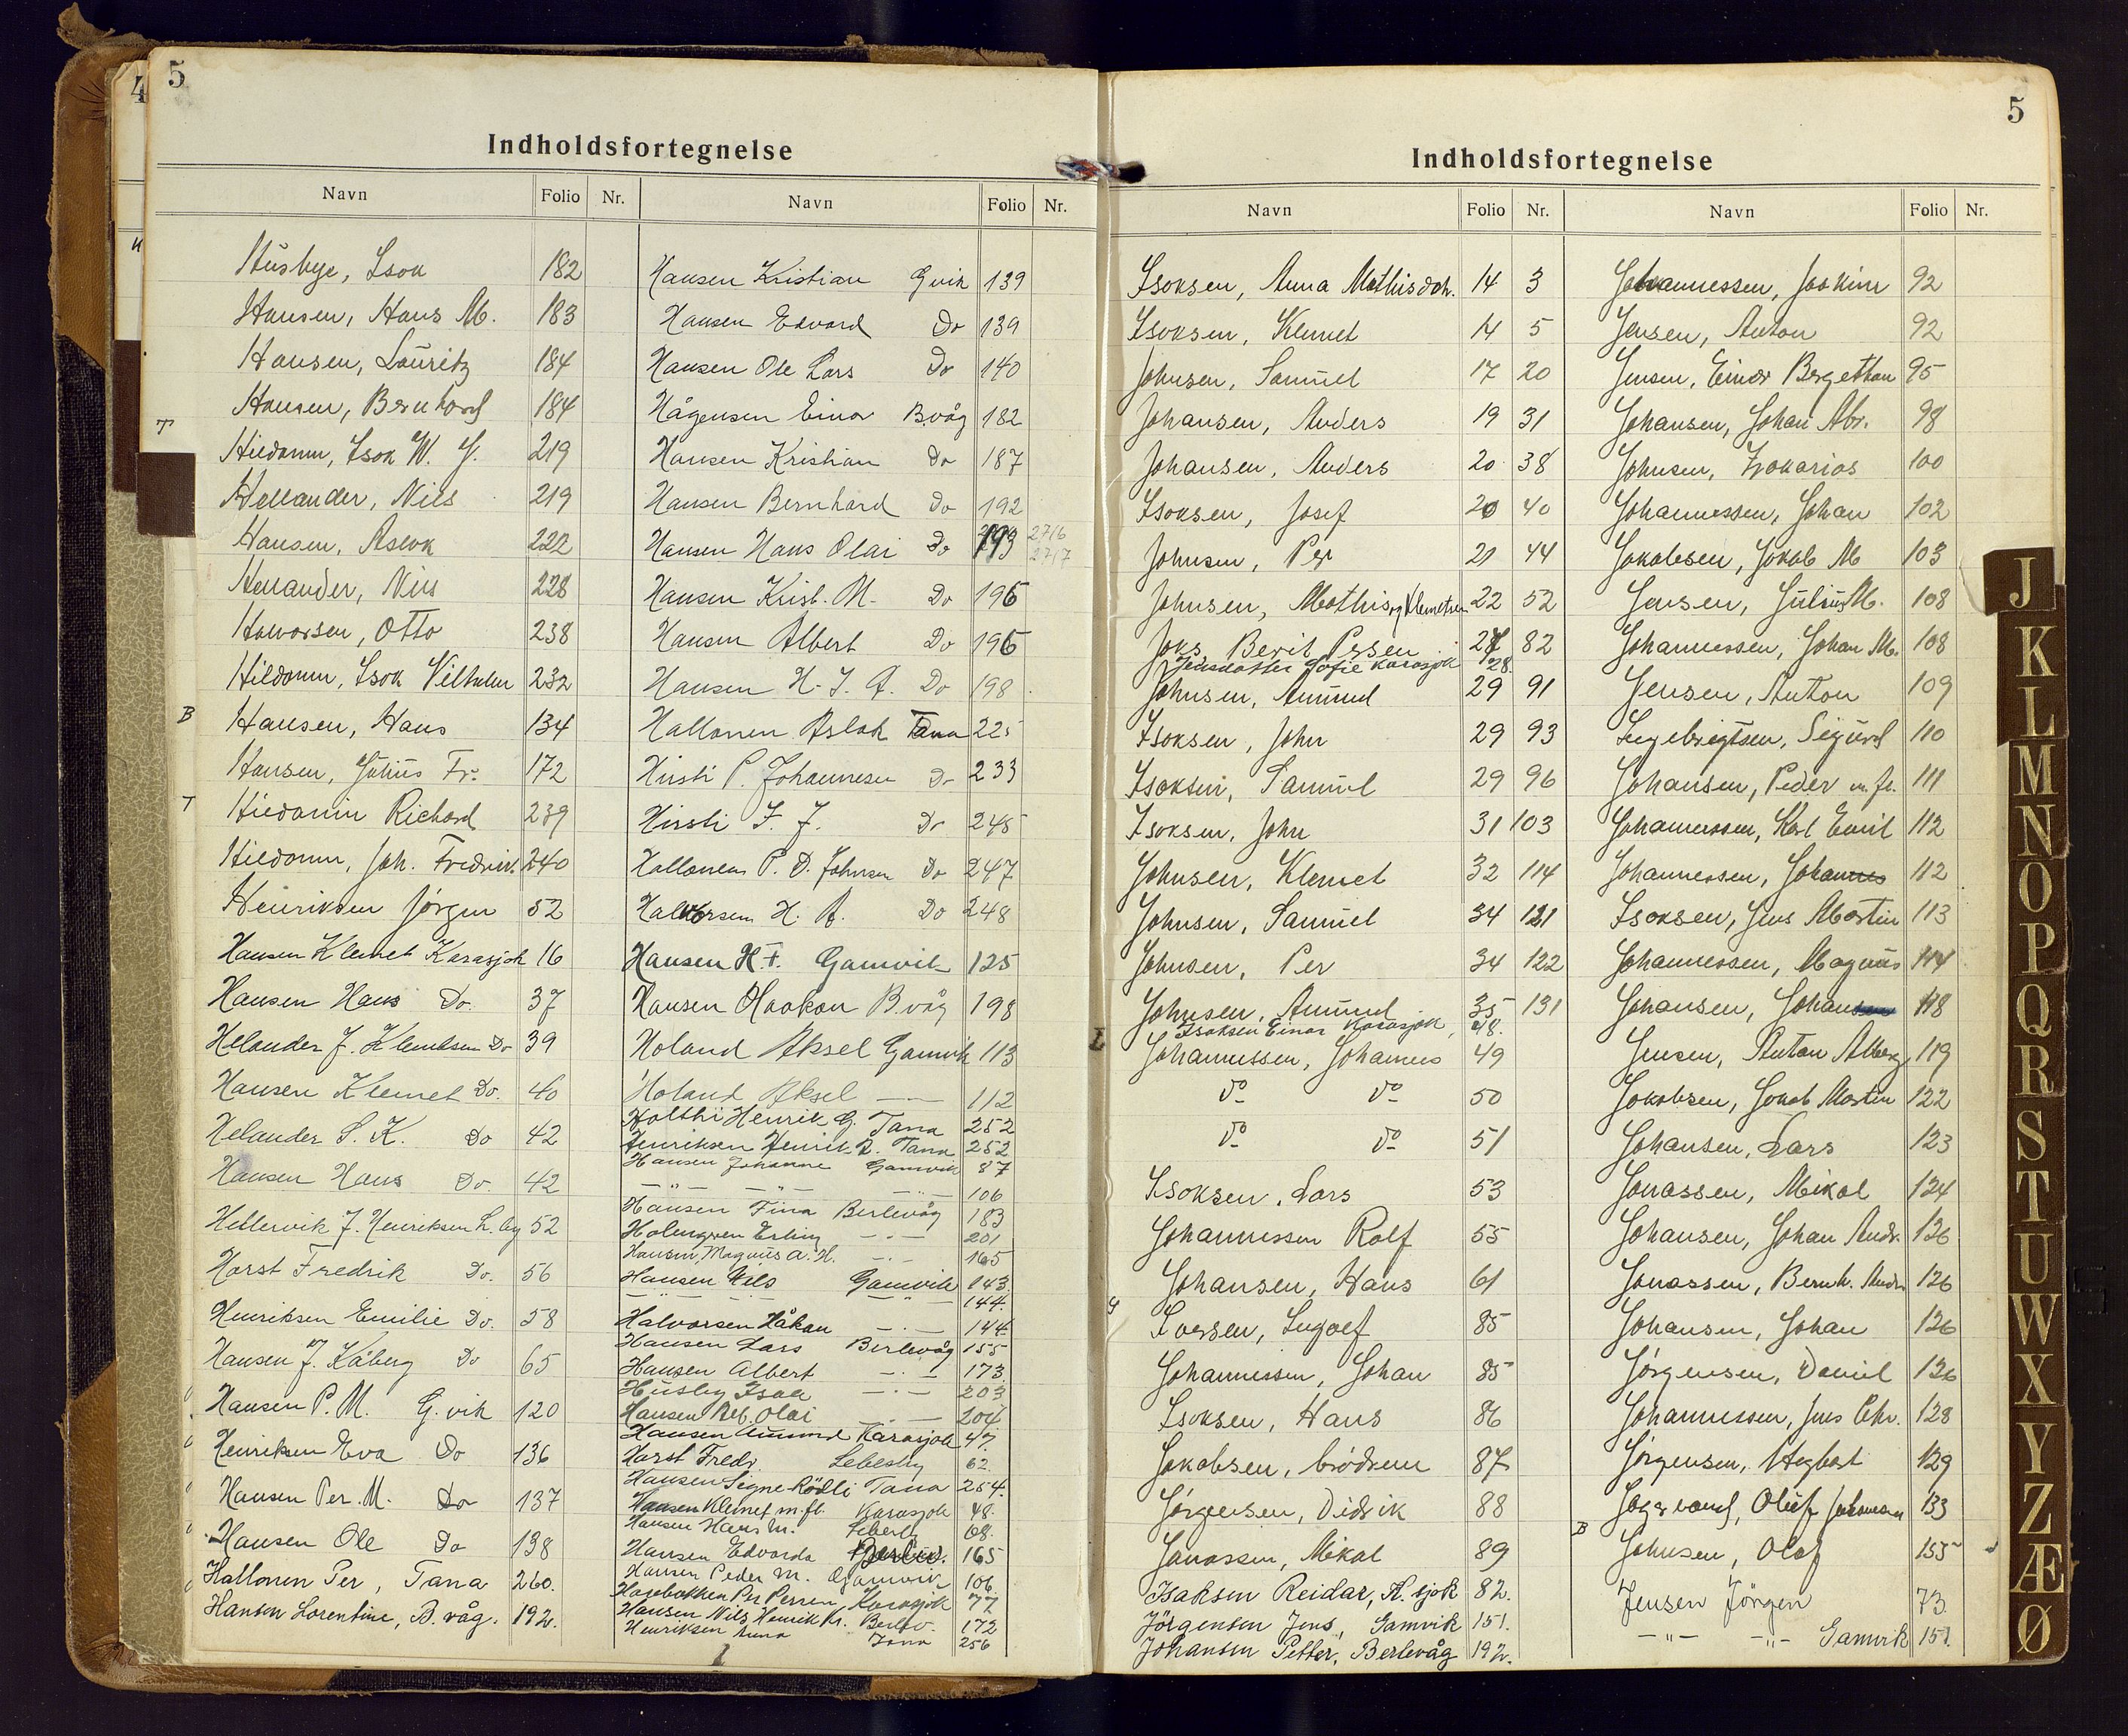 4
5
Indholdsfortegnelse
Navn Folio Nr. Navn Folio Nr.
Husbye, Isak 182
Hansen, Hans M. 183
Hansen, Lauritz 184
Hansen, Bernhard 184
T
Hildonen, Isak W. J. 219
Hellander, Nils 219
Hansen, Aslak 222
Hellander, Nils 228
Halvorsen, Otto 238
Hildonen, Isak Vilhelm 232
B Hansen, Hans 134
Hansen, Julius Fr. 172
T Hildonen Richard 239
Hildonen, Joh. Fredrik 240
Henriksen Jørgen 52
Hansen Klemet Karasjok 16
Hansen Hans Do. 37
Helander J. Klemetsen Do 39
Hansen Klemet Do. 40
Helander S. K. Do 42
Hansen Hans Do 42
Hellervik J. Henriksen L. by 52
Horst Fredrik Do. 56
Henriksen Emilie Do. 58
Hansen J. Kåberg Do 65
Hansen P. M. G. vik 120
Henriksen Eva Do 136
Hansen Per. M. Do 137
Hansen Ole Do 138
Hallonen Per, Tana 260.
Hansen Lorentine, B. våg. 192.
Hansen Kristian Gvik 139
Hansen Edvard Do 139
Hansen Ole Lars Do 140
Hågensen Einar Bvåg 182
Hansen Kristian Do 187
Hansen Bernhard Do 192
Hansen Hans Olai Do 193 2716 2717
Hansen Krist. M. Do 196
Hansen Albert Do 196
Hansen H. J. A. Do 198
Hallonen Aslak Tana 225
Hirsti P. Johannesen Do 233
Hirsti I. J. Do 245
Hallonen P. D. Johnsen Do 247
Halvorsen H. A. Do 248
Hansen H. F. Gamvik 125
Hansen Haakon B.våg 198
Holand Aksel Gamvik 113
Holand Aksel — 112
Holthi Henrik G. Tana 252
Henriksen Henrik A. Tana 252
Hansen Johanne Gamvik 87
— " — — " — — " — 106
Hansen Fina Berlevåg 183
Holmgren Erling — · — 201
Hansen, Magnus A. H. — · — 165
Hansen Nils Gamvik 143.
— " — — " — 144.
Halvorsen Håkan — · — 144
Hansen Lars Berlevåg 155
Hansen Albert — · — 173.
Husby Isak — · — 203
Hansen Alb. Olai — · — 204
Hansen Amund Karasjok 47.
Horst Fredr. Lebesby 62
Hansen Signe Rödli Tana 254.
Hansen Klemet m.fl. Karasjok 48.
Hansen Hans M. Lebesby 68.
Hansen Edvarda Berlev. 165
Hansen Peder M. Gamvik 106
Hagebakken Per Persen Karasjok 77
Hansen Nils Henrik Kr. Berlev. 172
Henriksen Anna Tana 256
5
Indholdsfortegnelse
Navn Folio Nr. Navn Folio Nr.
Isaksen, Anna Mathisdatr. 14 3
Isaksen, Klemet 14 5
Johnsen, Samuel 17 20
Johansen, Anders 19 31
Johansen, Anders 20 38
Isaksen, Josef 20 40
Johnsen, Per 21 44
Johnsen, Mathis og Klemetsen 22 52
Joks, Berit Persen 27 82
Jensdatter Sofie Karasjok 28.
Johnsen, Amund 29 91
Isaksen, John 29 93
Isaksen, Samuel 29 96
Isaksen, John 31 103
Johnsen, Klemet 32 114
Johnsen, Samuel 34 121
Johnsen, Per 34 122
Johnsen, Amund 35 131
Isaksen Einar Karasjok 48.
L Johannessen, Johannes 49
do do 50
do do 51
Isaksen, Lars 53
Johannessen Rolf 55
Johansen, Hans 61
G Iversen, Ingolf 85
Johannessen, Johan 85
Isaksen, Hans 86
Jakobsen, brødrene 87
Jørgensen, Didrik 88
Jonassen, Mikal 89
Isaksen Reidar, K. sjok 82.
Jörgensen Jens, Gamvik 151.
Johansen Petter, Berlevåg 192.
Johannessen, Joakim 92
Jensen, Anton 92
Jensen, Einar Bergethon 95
Johansen, Johan Abr. 98
Johnsen, Zakarias 100
Johannessen, Johan 102
Jakobsen, Jakob M 103
Jensen, Julius M. 108
Johannessen, Johan M. 108
Jensen, Anton 109
Ingebrigtsen, Sigurd 110
Johansen, Peder m. fl. 111
Johannessen, Karl Emil 112
Johannessen, Johannes 112
Isaksen, Jens Martin 113
Johannessen, Magnus 114
Johansen, Johansen 118
Jensen, Anton Alberg 119
Jakobsen, Jakob Martin 122
Johansen, Lars 123
Jonassen, Mikal 124
Johansen, Johan Andr. 126
Jonassen, Bernh. Andr. 126
Johansen, Johan 126
Jørgensen, Daniel 126
Johannessen, Jens Chr. 128
Jørgensen, Hegbart 129
Oluf Johannesen 133
B Johnsen, Olaf 155
Jensen Jörgen 73.
— " — — " — Gamvik 151.
J
K
L
M
N
O
P
Q
R
S
T
U
W
X
Y
Z
Æ
Ø